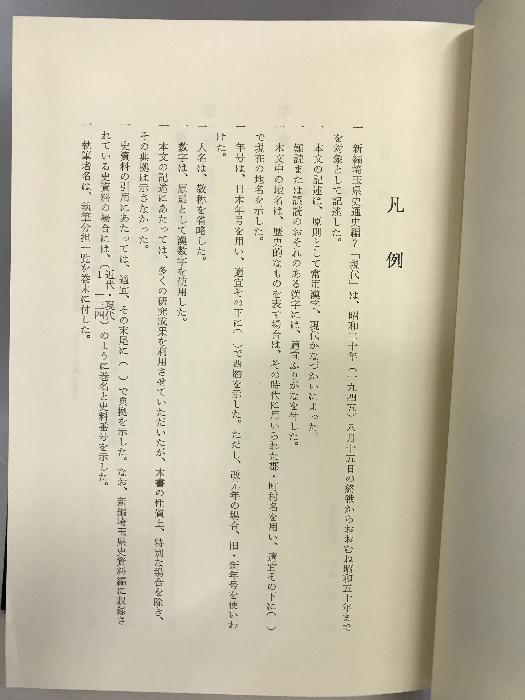 凡例
一 新編埼玉県史通史編7「現代」は、昭和二十年(一九四五)八月十五日の終戦からおおむね昭和五十年まで
を対象として記述した。
一 本文の記述は、原則として常用漢字、現代かなづかいによった。
一 難読または誤読のおそれのある漢字には、適宜ふりがなを付した。
一 本文中の地名は、歴史的なものを表す場合は、その時代に用いられた郡・町村名を用い、適宜その下に( )
で現在の地名を示した。
一 年号は、日本年号を用い、適宜その下に( )で西暦を示した。ただし、改元年の場合、旧・新年号を使いわ
けた。
一 人名は、敬称を省略した。
一 数字は、原則として漢数字を使用した。
一 本文の記述にあたっては、多くの研究成果を利用させていただいたが、本書の性質上、特別な場合を除き、
その典拠は示さなかった。
一 史資料の引用にあたっては、適宜、その末尾に( )で典拠を示した。なお、新編埼玉県史資料編に収録さ
れている史資料の場合には、(近代・現代1―三四)のように巻名と史料番号を示した。
一 執筆者名は、執筆分担一覧を巻末に付した。